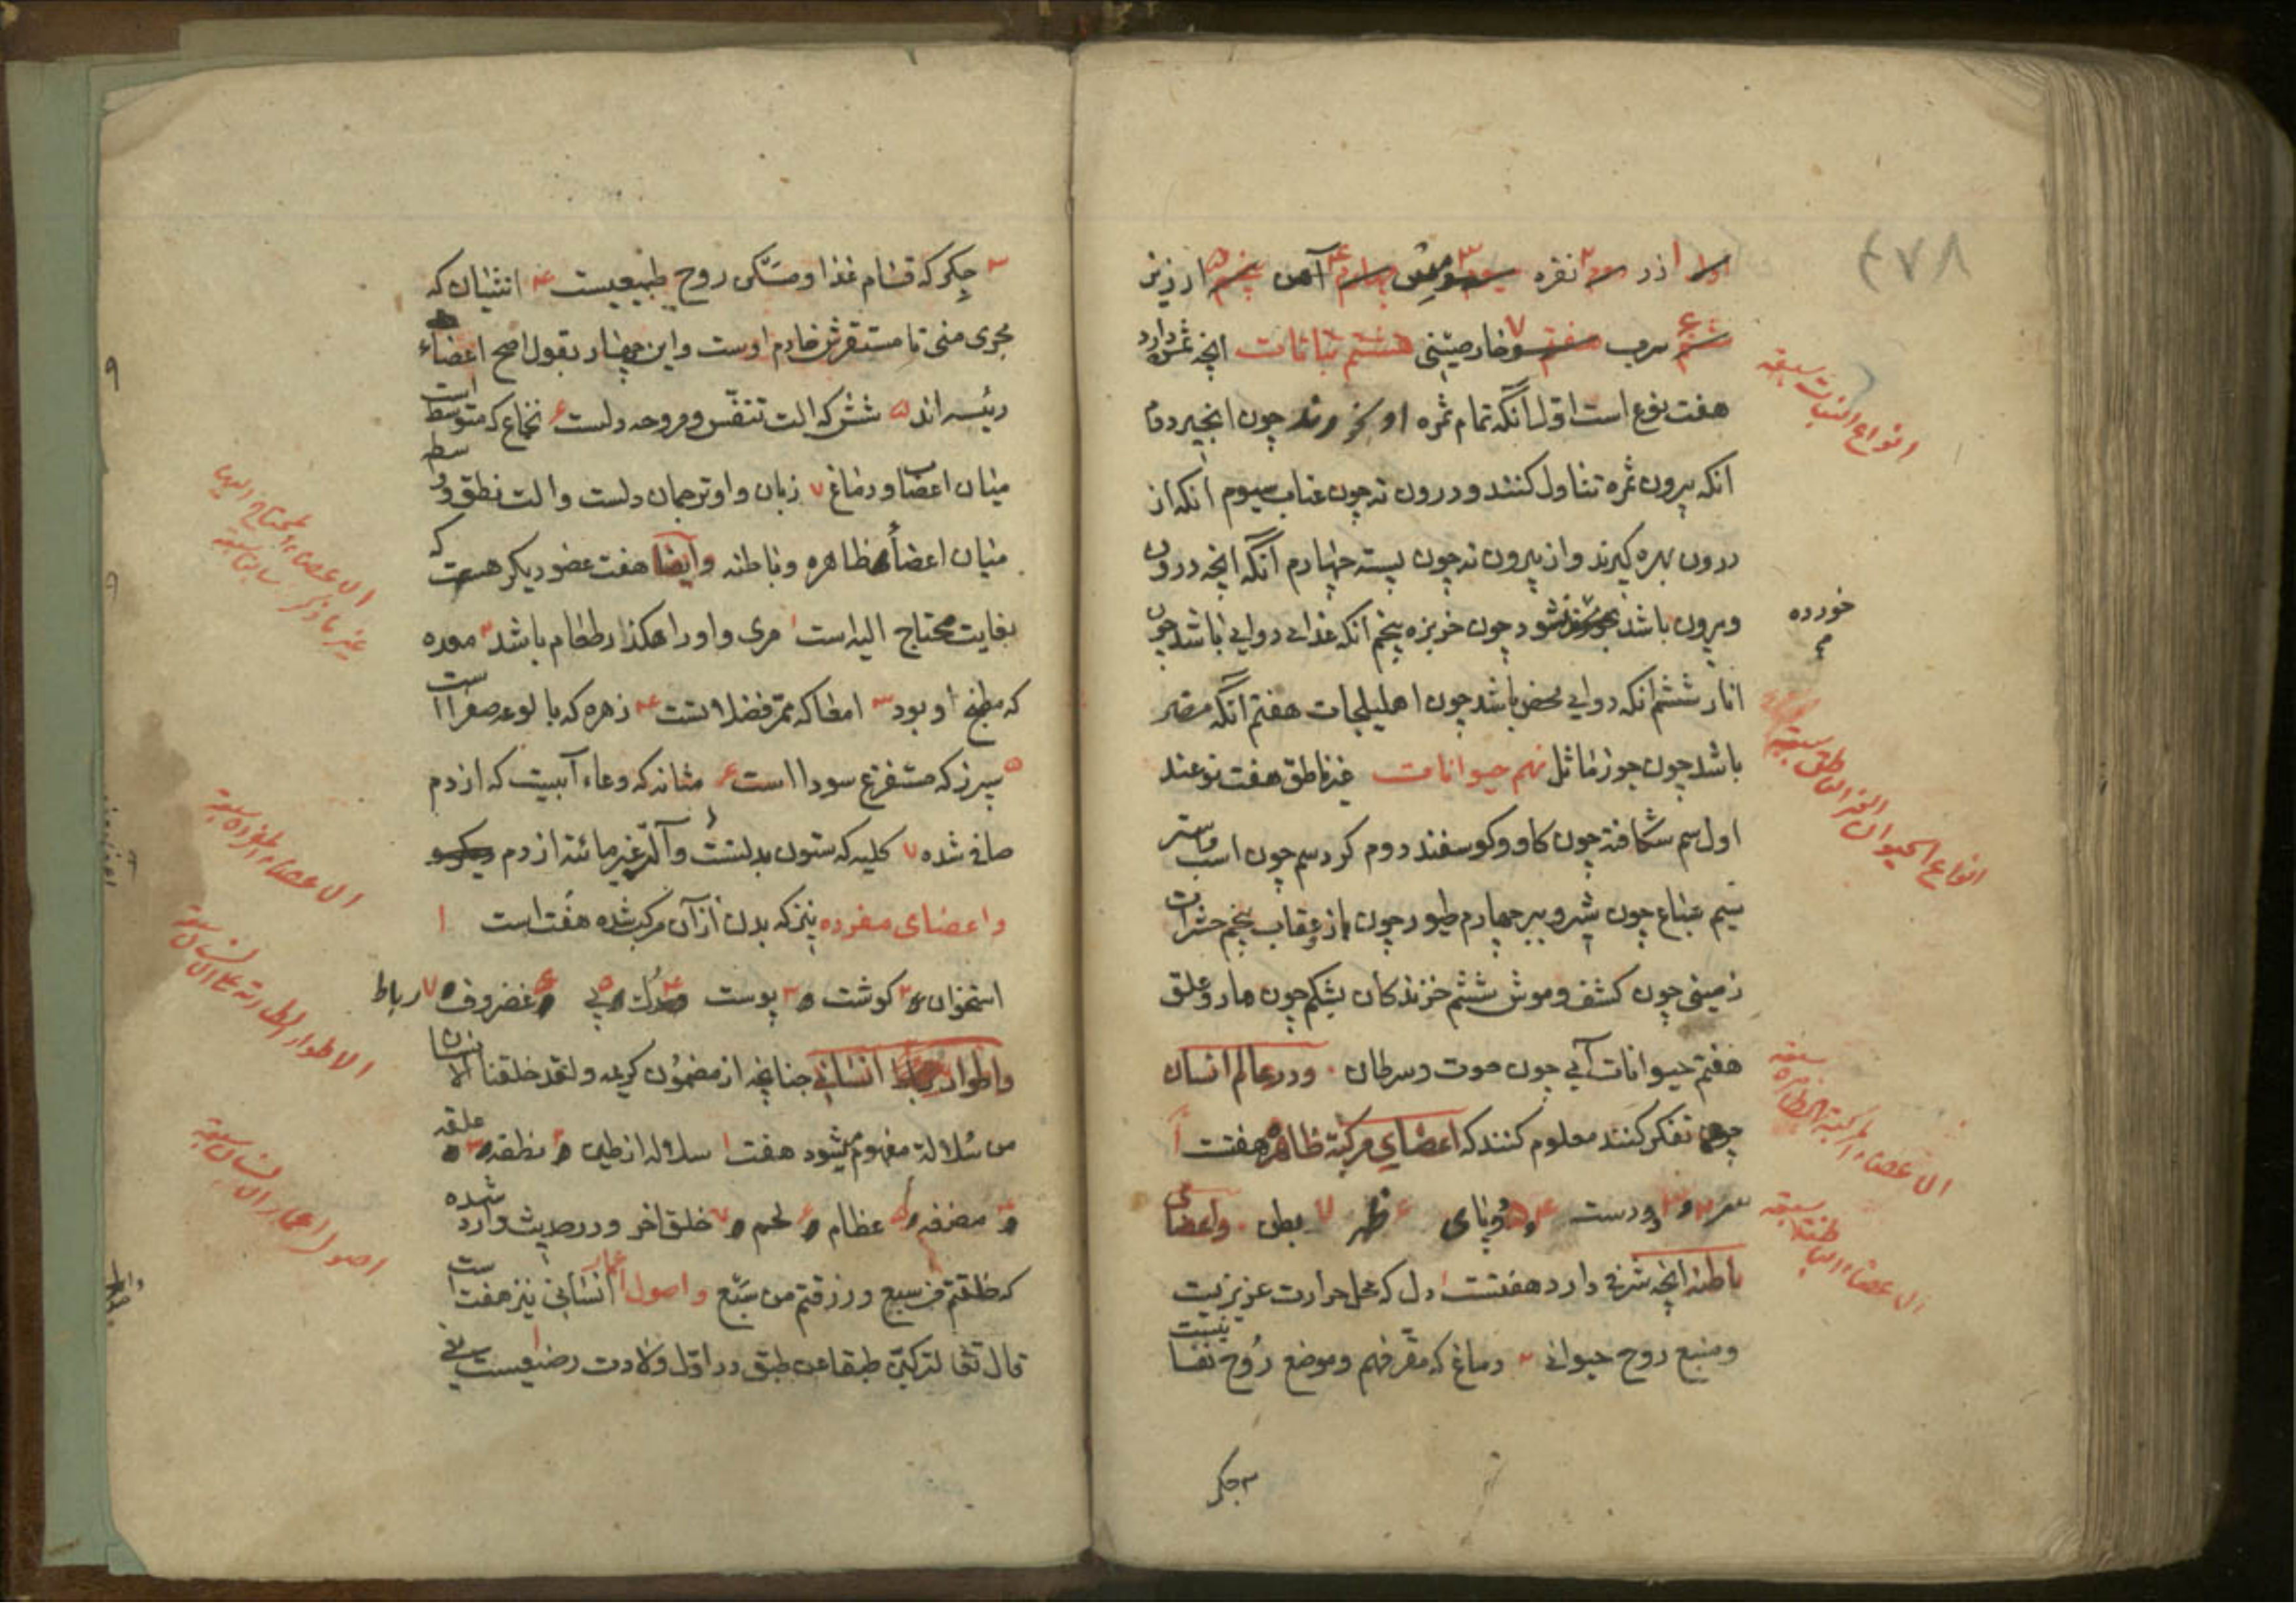 ۴۷۸
اول ۱ زر ۲ نقره سوم ۳ مس چهارم ۴ آهن پنجم ۵ ارزیز
ششم ۶ سرب هفتم ۷ خارصینی هشتم نباتات انچه ثمر دارد
هفت نوع است اول آنکه تمام ثمره او خورند چون انجیر دوم
انکه بیرون ثمره تناول کنند و درون نه چون عناب سیوم انکه از
درون بهره کیرند و از بیرون نه چون پسته چهارم آنکه انچه درون
و بیرون باشد خورده شود چون خربزه پنجم انکه غذای دوایی باشد چون
انار ششم آنکه دوایی محض باشد چون اهلیلجات هفتم آنکه مضر
باشد چون جوز ماثل نهم حیوانات غیر ناطق هفت نوعند
اول سم شکافته چون کاو و کوسفند دوم کرد سم چون اسب و استر
سیم سباع چون شیر و ببر چهارم طیور چون باز و عقاب پنجم حشرات
زمینی چون کشف و موش ششم خزندکان بشکم چون مار و علق
هفتم حیوانات آبی چون حوت و سرطان و در عالم انسان
چون تفکر کنند معلوم کنند که اعضای مرکبة ظاهره هفتست ۱
سر ۲ و ۳ دو دست ۴ و ۵ دو پای ۶ ظهر ۷ بطن و اعضای
باطنه انچه شرفی دارد هفتست ۱ دل که محل حرارت عزیزیست
و منبع روح حیوانی ۲ دماغ که مقر فهم و موضع روح نفسانیست
۳ جکر
انواع النبات سبعة
خورده
انواع الحیوان الغیر الناطق سبعة
الاعضاء المرکبة الظاهرة سبعة
الاعضاء الباطنة سبعة
۳ جکر که قسام غذا و مسکن روح طبیعیست ۴ انثیان که
مجری منی تا مستقرش خادم اوست و این چهار بقول اصح اعضاء
رئیسه اند ۵ شش که الت تنفس و مروحه دلست ۶ نخاع که متوسط است
میان اعصاب و دماغ ۷ زبان و او ترجمان دلست و الت نطق و واسطه
میان اعضاء ظاهره و باطنه و ایضا هفت عضو دیکر هست که
بغایت محتاج الیه است ۱ مری و او راهکذار طعام باشد ۲ معده
که مطبخ او بود ۳ امعا که ممر فضلاتست ۴ زهره که بالوعه صفرا است
۵ سپرز که مستفرغ سودا است ۶ مثانه که وعاء آبیست که از دم
صافی شده ۷ کلیه که ستون بدلست و آلة تمییز مائیة از دم
و اعضای مفرده نیز که بدن از آن مرکب شده هفت است ۱
استخوان و ۲ کوشت و ۳ پوست و ۴ رک و ۵ پی و ۶ غضروف و ۷ رباط
و اطوار انسانی چنانچه از مضمون کریمه و لقد خلقنا الانسان
من سلالة مفهوم میشود هفت ۱ سلاله از طین و ۲ نطفه و ۳ علقه
و ۴ مضغه و ۵ عظام و ۶ لحم و ۷ خلق اخر و در حدیث وارد شده
که خلقتم من سبع و رزقتم من سبع و اصول اعمار انسانی نیز هفت است
قال تعا لترکبن طبقا عن طبق در اول ولادت رضیعست
الاعضاء المحتاج الیها
غیر ما ذکر سابقا سبعة
الاعضاء المفردة سبعة
الاطوار الطارئة علی الانسان سبعة
اصول اعمار الانسان سبعة